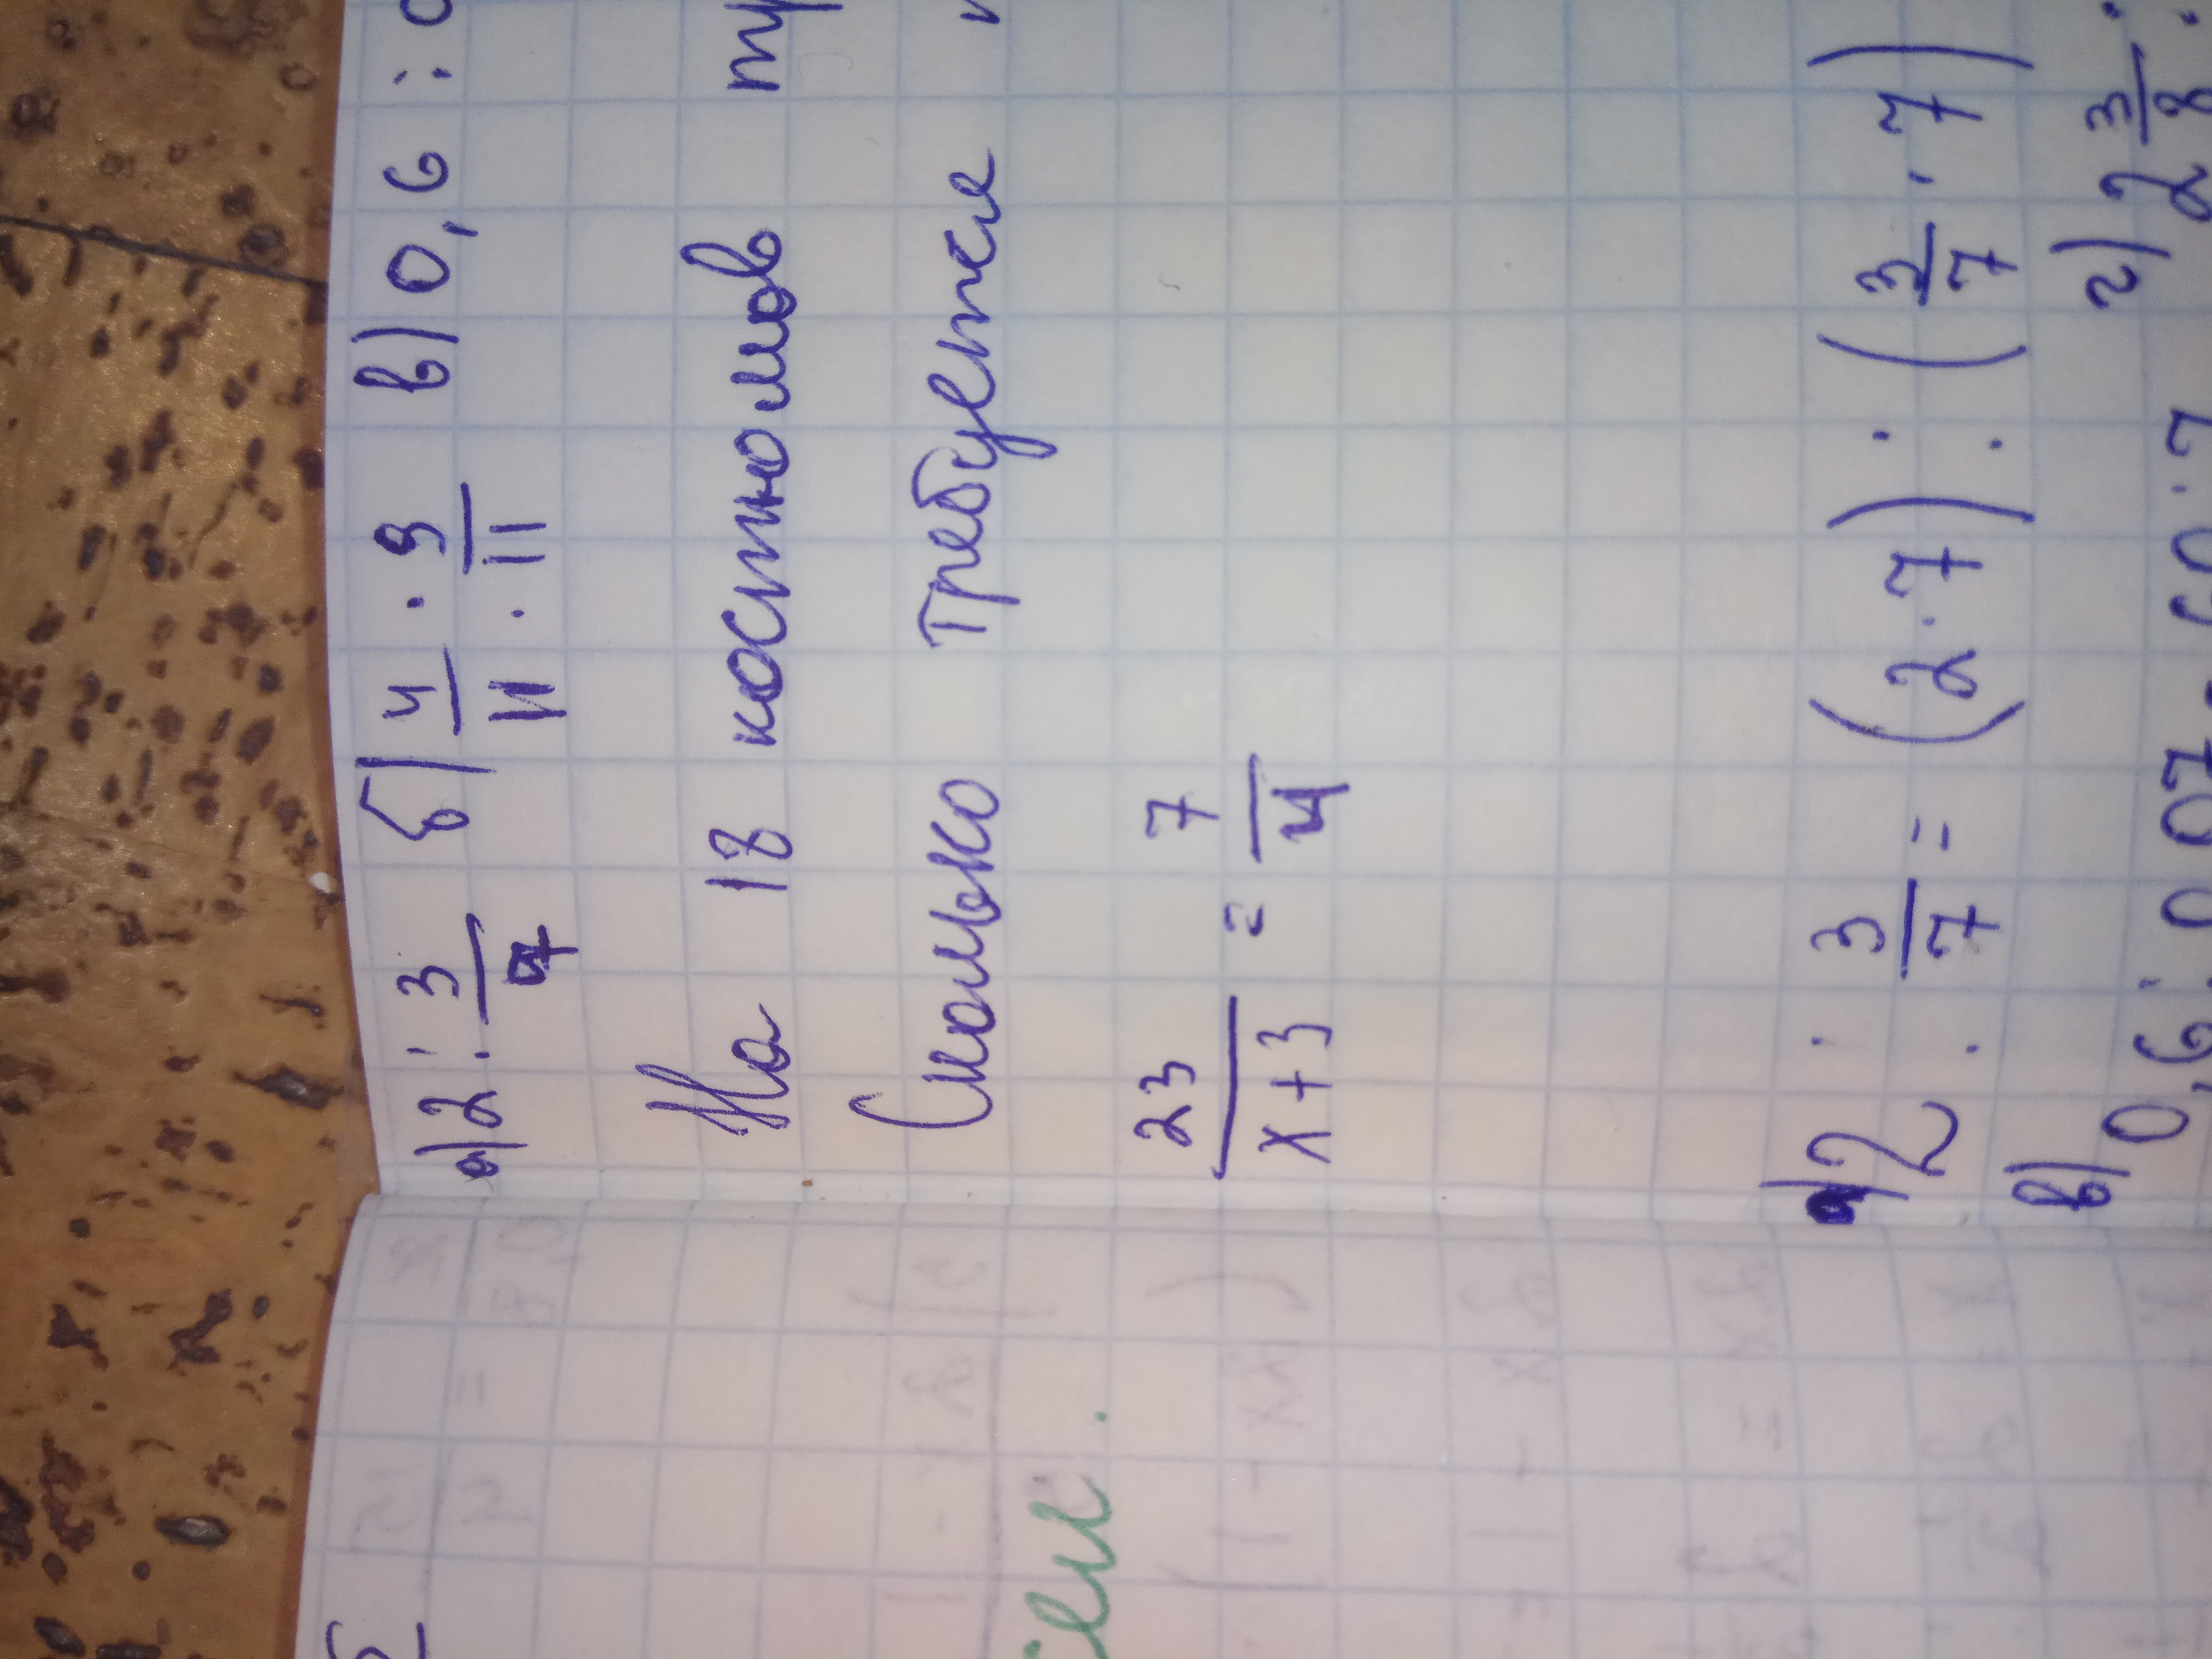 а) 2 : 3/7 б) 4/11 : 9/11 в) 0,6 :
На 18 костюмов
Сколько требуется
23/(x+3) = 7/4
а) 2 : 3/7 = (2·7) : (3/7 · 7)
в) 0,6 : 0,07 = 60 : 7 г) 2 3/8 :